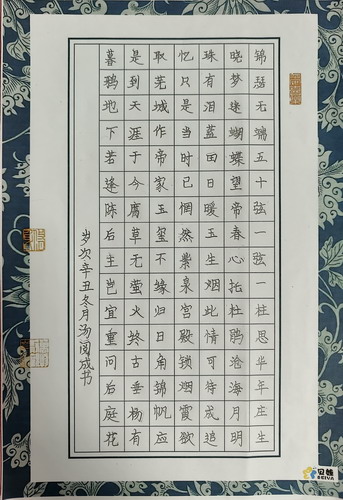 锦瑟无端五十弦一弦一柱思华年庄生
晓梦迷蝴蝶望帝春心托杜鹃沧海月明
珠有泪蓝田日暖玉生烟此情可待成追
忆只是当时已惘然紫泉宫殿锁烟霞欲
取芜城作帝家玉玺不缘归日角锦帆应
是到天涯于今腐草无萤火终古垂杨有
暮鸦地下若逢陈后主岂宜重问后庭花
岁次辛丑冬月汤阅成书